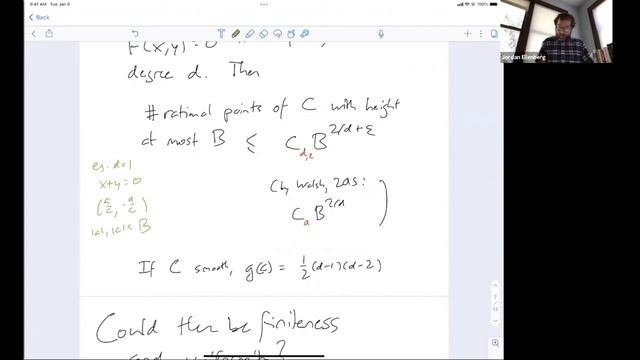 9:41 AM Tue Jan 9
100%
Back
Jordan Ellenberg
F(x,y) = 0
degree d. Then
# rational points of C with height
at most B ≤ C_{d,ε} B^{2/d + ε}
eg. d=1
x+y=0
(a/c, -a/c)
|a|, |c| < B
(by Walsh, 2015:
C_d B^{2/d} )
If C smooth, g(C) = 1/2 (d-1)(d-2)
7 / 13
Could there be finiteness
and uniformity?